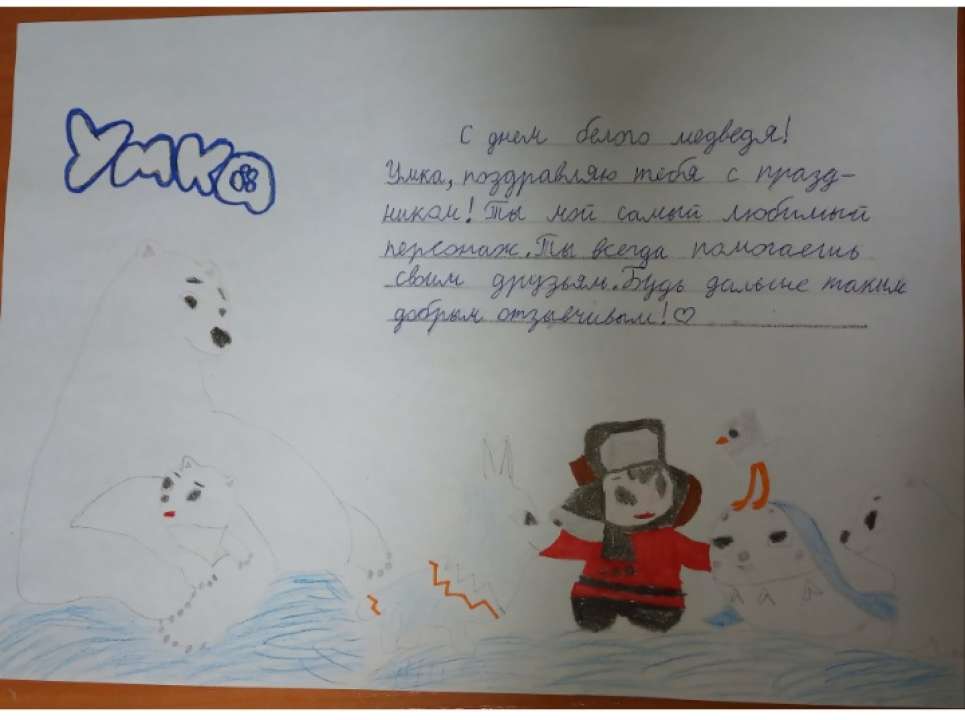 Умка
С днем белого медведя!
Умка, поздравляю тебя с празд-
ником! Ты мой самый любимый
персонаж. Ты всегда помогаешь
своим друзьям. Будь дальше таким
добрым отзывчивым! ♡